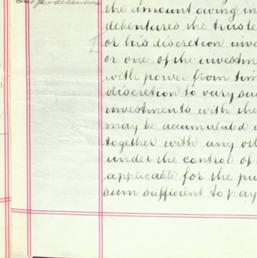 the amount owing in
debentures the trustee
or his discretion inve
or one of the investm
with power from tim
discretion to vary suc
investments with the
may be accumulated
together with any oth
under the control of
applicable for the pu
sum sufficient to pay